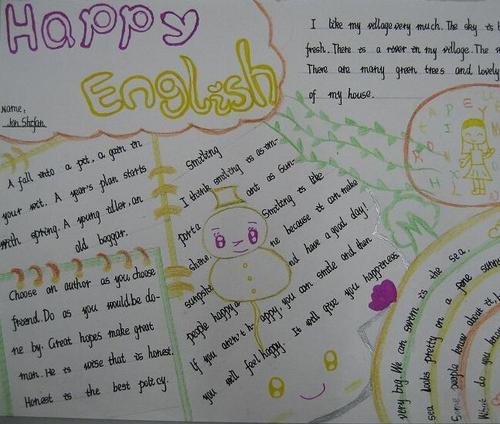 Happy
English
Name:
I like my village very much. The sky is
fresh. There is a rover in my village. The
There are many green trees and lovely
of my house.
A fall into a pit, a gain in
your wit. A year's plan starts
with spring. A young idler, an
old beggar.
Choose an author as you choose
freend. Do as you would be do-
ne by. Great hopes make great
man. He is wise that is honest.
Honest is the best policy.
Smiling
I think smiling is as im-
porta ant as sun-
shine Smiling is like
sunshi ne because it can make
people happy a nd have a good day!
If you aren't h- appy, you can smile and then
you will feel happy. It will give you happiness
very big. We can swim in the sea.
sea looks pretty on a fine
Some people know about
What do you know